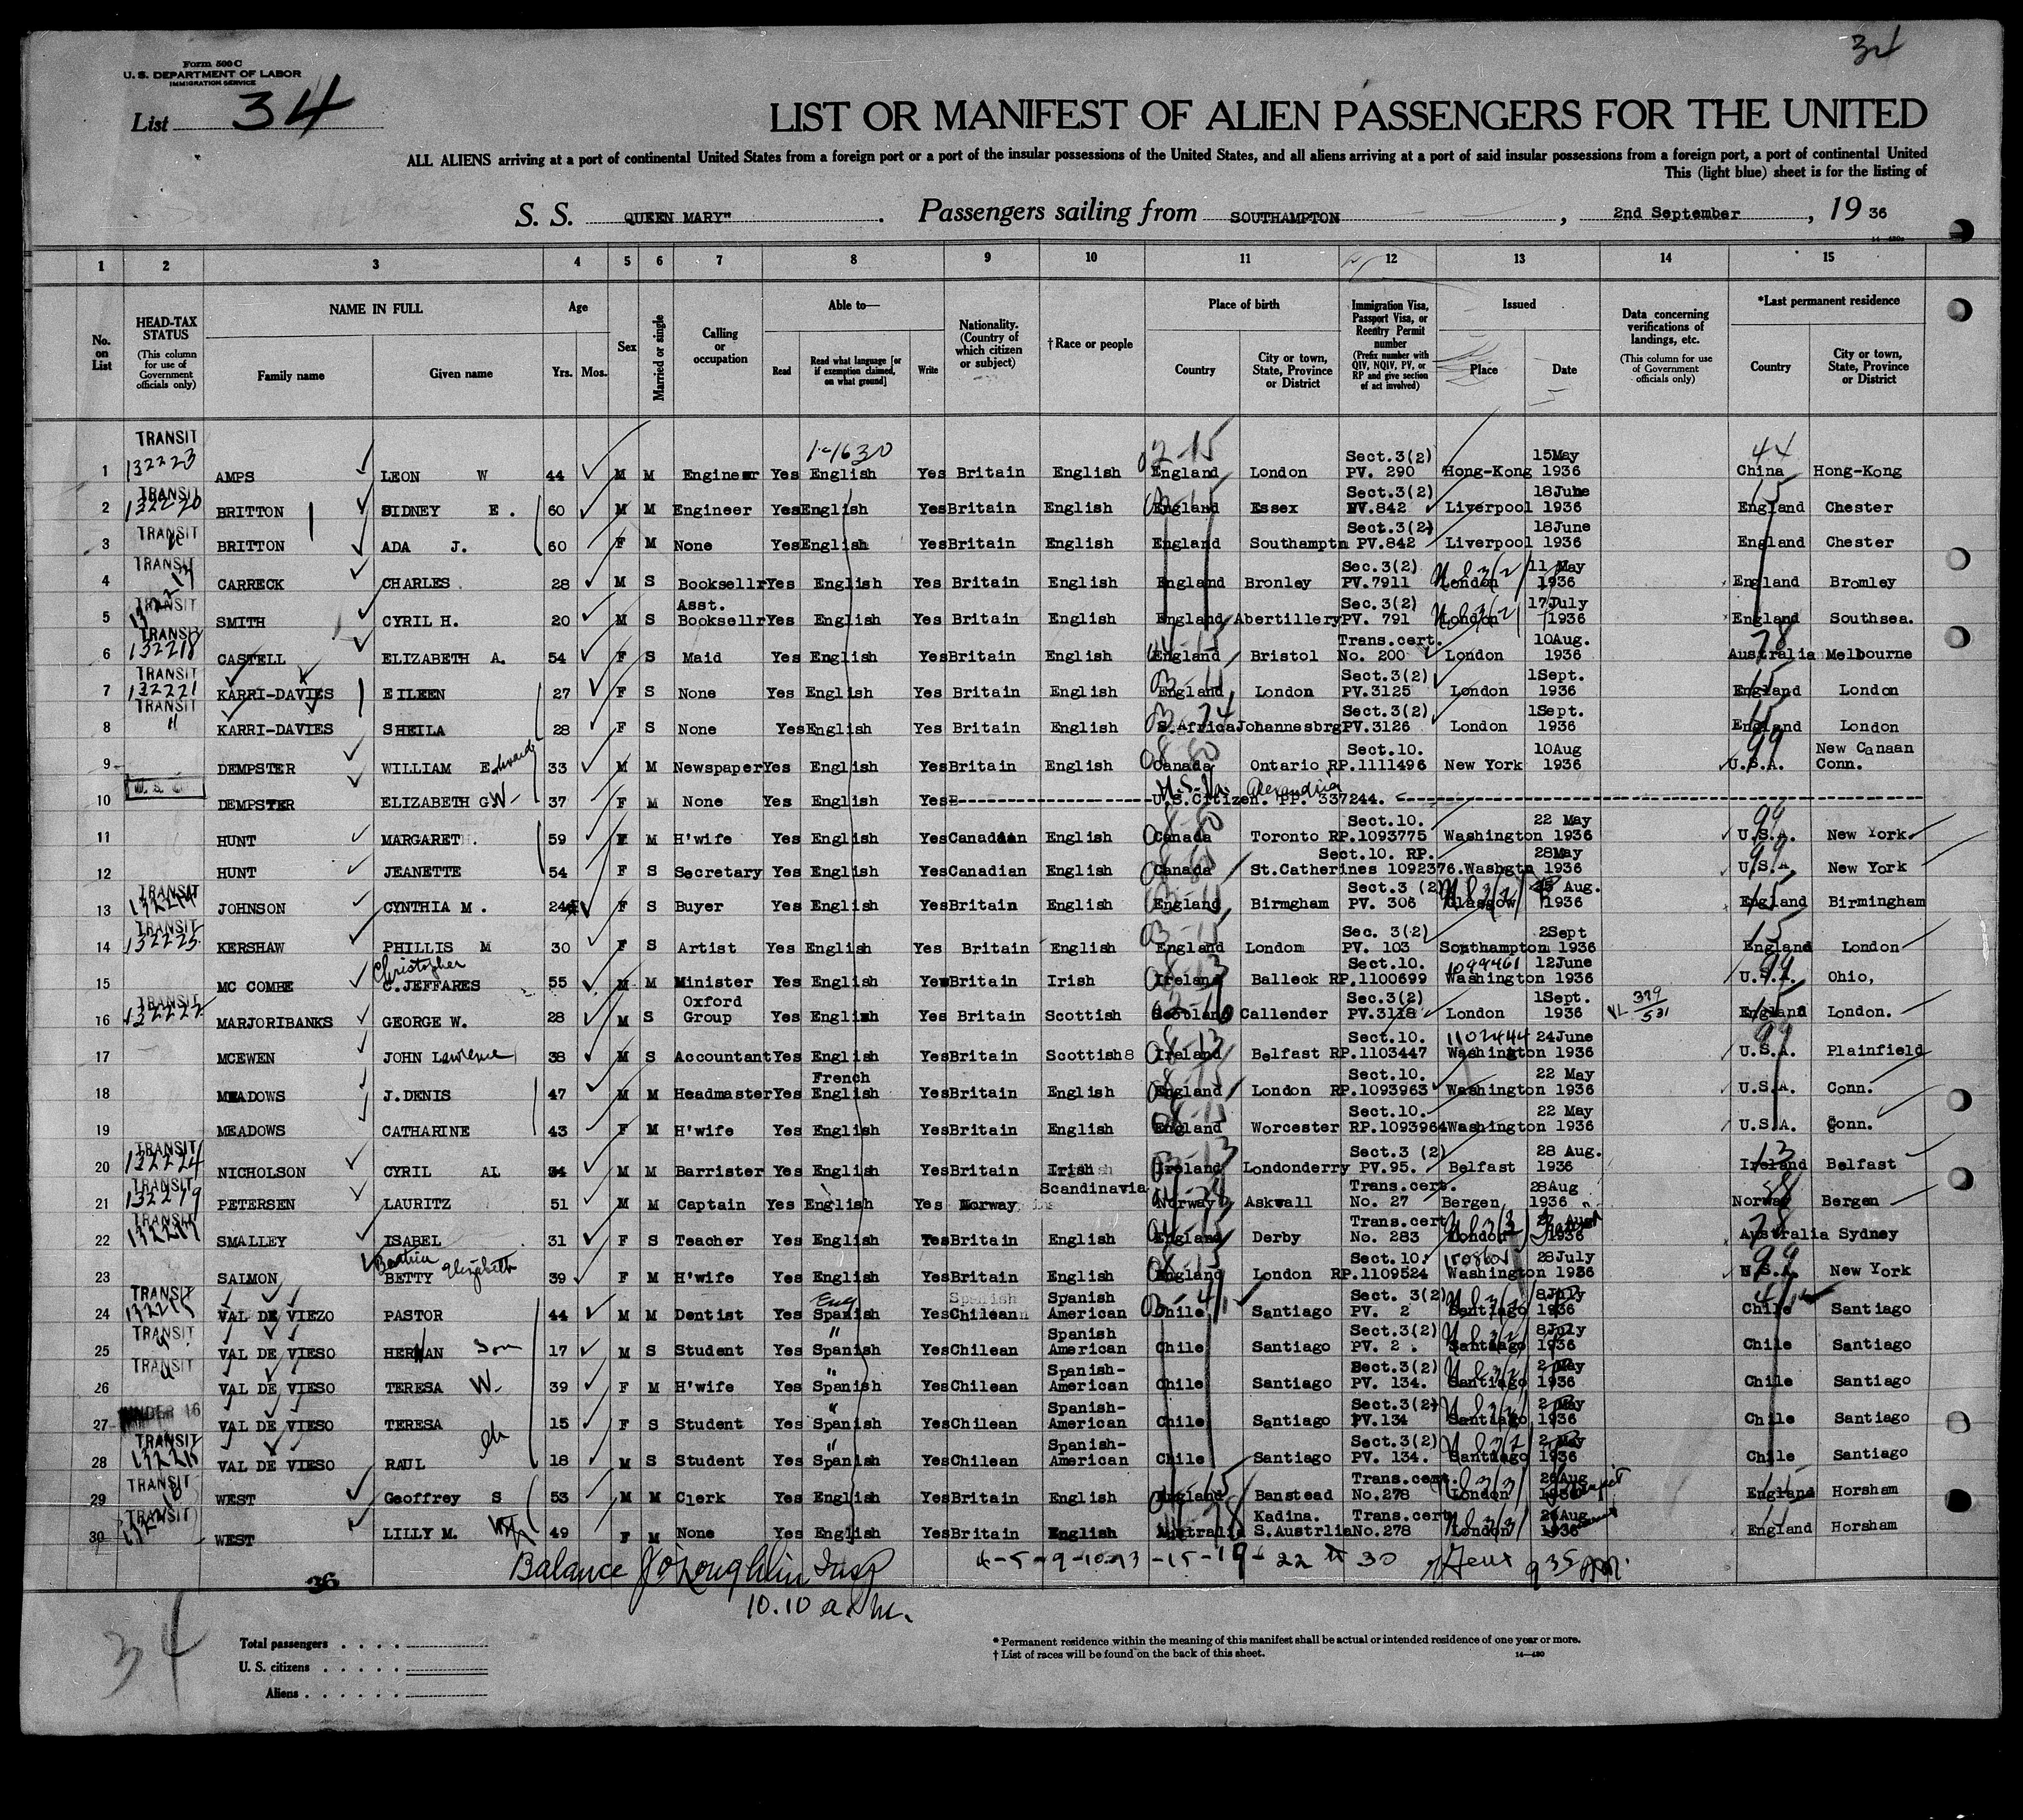 Form 500 C
U. S. DEPARTMENT OF LABOR
IMMIGRATION SERVICE
34
List 34
LIST OR MANIFEST OF ALIEN PASSENGERS FOR THE UNITED
ALL ALIENS arriving at a port of continental United States from a foreign port or a port of the insular possessions of the United States, and all aliens arriving at a port of said insular possessions from a foreign port, a port of continental United
This (light blue) sheet is for the listing of
S. S. QUEEN MARY" . Passengers sailing from SOUTHAMPTON , 2nd September , 19 36
1 2 3 4 5 6 7 8 9 10 11 12 13 14 15
No. on List
HEAD-TAX STATUS (This column for use of Government officials only)
NAME IN FULL Family name Given name
Age Yrs. Mos.
Sex
Married or single
Calling or occupation
Able to— Read Read what language [or if exemption claimed, on what ground] Write
Nationality. (Country of which citizen or subject)
†Race or people
Place of birth Country City or town, State, Province or District
Immigration Visa, Passport Visa, or Reentry Permit number (Prefix number with QIV, NQIV, PV, or RP and give section of act involved)
Issued Place Date
Data concerning verifications of landings, etc. (This column for use of Government officials only)
*Last permanent residence Country City or town, State, Province or District
1 TRANSIT 132223 AMPS LEON W 44 M M Engineer Yes English Yes Britain English England London Sect.3(2) PV. 290 Hong-Kong 15May 1936 China Hong-Kong
2 TRANSIT 132220 BRITTON SIDNEY E. 60 M M Engineer Yes English Yes Britain English England Essex Sect.3(2) PV.842 Liverpool 18June 1936 England Chester
3 TRANSIT BRITTON ADA J. 60 F M None Yes English Yes Britain English England Southamptn Sect.3(2) PV.842 Liverpool 18June 1936 England Chester
4 TRANSIT CARRECK CHARLES 28 M S Booksellr Yes English Yes Britain English England Bronley Sec.3(2) PV.7911 London 11 May 1936 England Bromley
5 TRANSIT SMITH CYRIL H. 20 M S Asst. Booksellr Yes English Yes Britain English England Abertillery Sec.3(2) PV. 791 London 17July 1936 England Southsea.
6 TRANSIT 132218 CASTELL ELIZABETH A. 54 F S Maid Yes English Yes Britain English England Bristol Trans.cert. No. 200 London 10Aug. 1936 Australia Melbourne
7 TRANSIT 132221 KARRI-DAVIES EILEEN 27 F S None Yes English Yes Britain English England London Sect.3(2) PV.3125 London 1Sept. 1936 England London
8 TRANSIT " KARRI-DAVIES SHEILA 28 F S None Yes English Yes Britain English S.Africa Johannesbrg Sect.3(2) PV.3126 London 1Sept. 1936 England London
9 DEMPSTER WILLIAM Edward 33 M M Newspaper Yes English Yes Britain English Canada Ontario Sect.10. RP.1111496 New York 10Aug 1936 U.S.A. New Canaan Conn.
10 DEMPSTER ELIZABETH G W- 37 F M None Yes English Yes U.S.Citizen. PP. 337244. Alexandria
11 HUNT MARGARET. 59 F M H'wife Yes English Yes Canadian English Canada Toronto Sect.10. RP.1093775 Washington 22 May 1936 U.S.A. New York
12 HUNT JEANETTE 54 F S Secretary Yes English Yes Canadian English Canada St.Catherines Sect.10. RP. 1092376. Washgtn 28May 1936 U.S.A. New York
13 TRANSIT JOHNSON CYNTHIA M. 24 F S Buyer Yes English Yes Britain English England Birmgham Sect.3 (2) PV. 306 Glasgow 25 Aug. 1936 England Birmingham
14 TRANSIT 132225 KERSHAW PHILLIS M 30 F S Artist Yes English Yes Britain English England London Sec. 3(2) PV. 103 Southampton 2Sept 1936 England London
15 MC COMBE Christopher C.JEFFARES 55 M M Minister Yes English Yes Britain Irish Ireland Balleck Sect.10. RP.1100699 1099461 Washington 12June 1936 U.S.A. Ohio,
16 TRANSIT 132222 MARJORIBANKS GEORGE W. 28 M S Oxford Group Yes English Yes Britain Scottish Scotland Callender Sec.3(2) PV.3118 London 1Sept. 1936 VL 379/531 England London.
17 MCEWEN JOHN Lawrence 38 M S Accountant Yes English Yes Britain Scottish8 Ireland Belfast Sect.10. RP.1103447 1102444 Washington 24June 1936 U.S.A. Plainfield
18 MEADOWS J.DENIS 47 M M Headmaster Yes French English Yes Britain English England London Sect.10. RP.1093963 Washington 22 May 1936 U.S.A. Conn.
19 MEADOWS CATHARINE 43 F M H'wife Yes English Yes Britain English England Worcester Sect.10. RP.1093964 Washington 22 May 1936 U.S.A. Conn.
20 TRANSIT 132224 NICHOLSON CYRIL AL 34 M M Barrister Yes English Yes Britain Irish Ireland Londonderry Sect.3 (2) PV.95. Belfast 28 Aug. 1936 Ireland Belfast
21 TRANSIT 132219 PETERSEN LAURITZ 51 M M Captain Yes English Yes Norway Scandinavia Norway Askwall Trans.cert. No. 27 Bergen 28Aug 1936 Norway Bergen
22 TRANSIT 132217 SMALLEY ISABEL 31 F S Teacher Yes English Yes Britain English England Derby Trans.cert No. 283 London Aug 1936 Australia Sydney
23 SALMON BETTY Elizabeth 39 F M H'wife Yes English Yes Britain English England London Sect.10. RP.1109524 Washington 28July 1936 U.S.A. New York
24 TRANSIT VAL DE VIEZO PASTOR 44 M M Dentist Yes Eng Spanish Yes Chilean Spanish American Chile Santiago Sect. 3(2) PV. 2 Santiago 8July 1936 Chile Santiago
25 TRANSIT VAL DE VIESO HERNAN Son 17 M S Student Yes " Spanish Yes Chilean Spanish American Chile Santiago Sect.3(2) PV. 2. Santiago 8July 1936 Chile Santiago
26 TRANSIT VAL DE VIESO TERESA W. 39 F M H'wife Yes " Spanish Yes Chilean Spanish-American Chile Santiago Sect.3(2) PV. 134. Santiago 2 May 1936 Chile Santiago
27 UNDER 16 VAL DE VIESO TERESA 15 F S Student Yes " Spanish Yes Chilean Spanish-American Chile Santiago Sect.3(2) PV.134 Santiago 2 May 1936 Chile Santiago
28 TRANSIT VAL DE VIESO RAUL ch 18 M S Student Yes " Spanish Yes Chilean Spanish-American Chile Santiago Sect.3(2) PV. 134. Santiago 2 May 1936 Chile Santiago
29 TRANSIT WEST Geoffrey S 53 M M Clerk Yes English Yes Britain English England Banstead Trans.cert. No.278 London 26Aug 1936 England Horsham
30 TRANSIT WEST LILLY M. 49 F M None Yes English Yes Britain English Australia Kadina. S.Austrlia Trans.cert No.278 London 26Aug 1936 England Horsham
Balance J O'Loughlin Insp 4-5-9-10-13-15-19-22 to 30 935 AM.
36 10.10 a.m.
34
Total passengers . . . .
U. S. citizens . . . . .
Aliens . . . . . .
* Permanent residence within the meaning of this manifest shall be actual or intended residence of one year or more.
† List of races will be found on the back of this sheet.
14—430